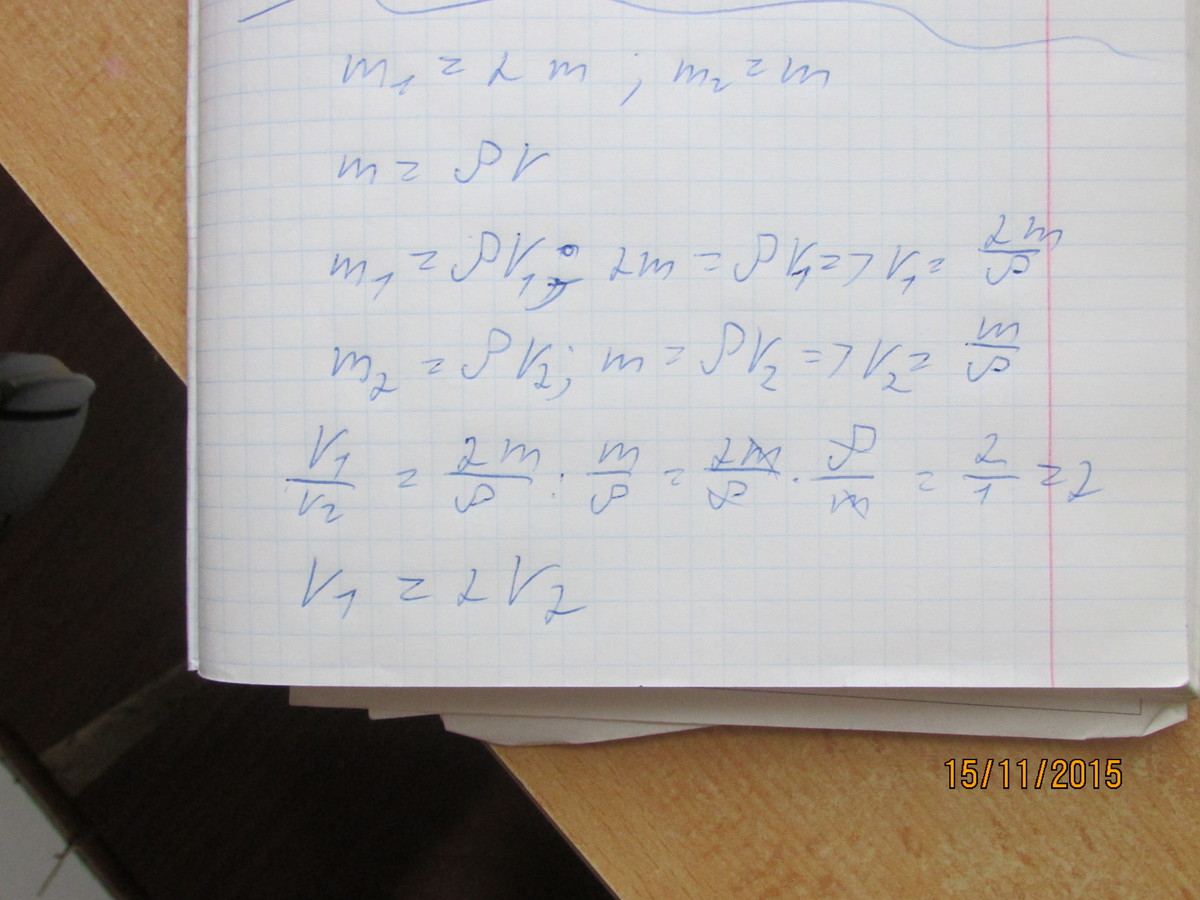 m₁ = 2m ; m₂ = m
m = ρV
m₁ = ρV₁; 2m = ρV₁ => V₁ = 2m/ρ
m₂ = ρV₂; m = ρV₂ => V₂ = m/ρ
V₁/V₂ = 2m/ρ : m/ρ = 2m/ρ · ρ/m = 2/1 = 2
V₁ = 2V₂
15/11/2015